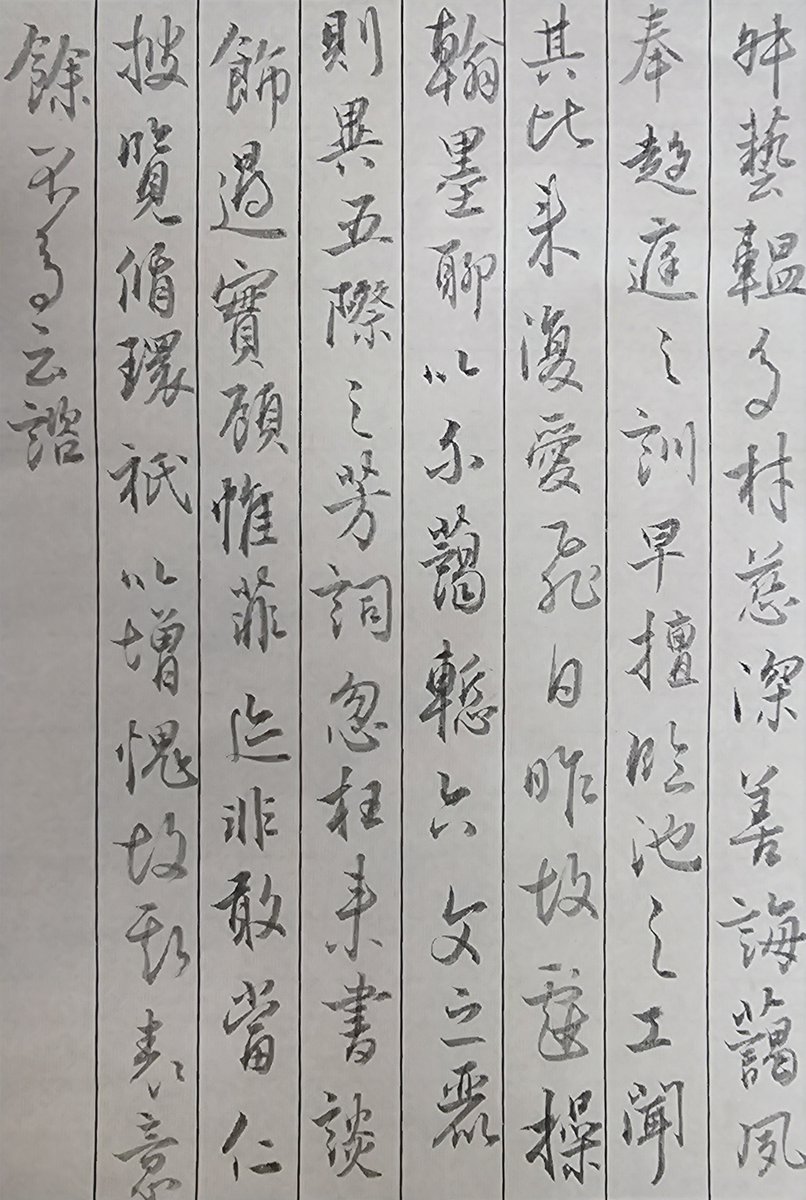 藝韞多材慈深善誨藹夙
奉趍庭之訓早擅臨池之工聞
其比来復愛飛白昨故虔操
翰墨聊以示藹慙六文之麗
則異五際之芳詞忽枉来書談
飾過實顧惟菲迹非敢當仁
披覽循環祇以增愧故茲表意
餘不多云諮